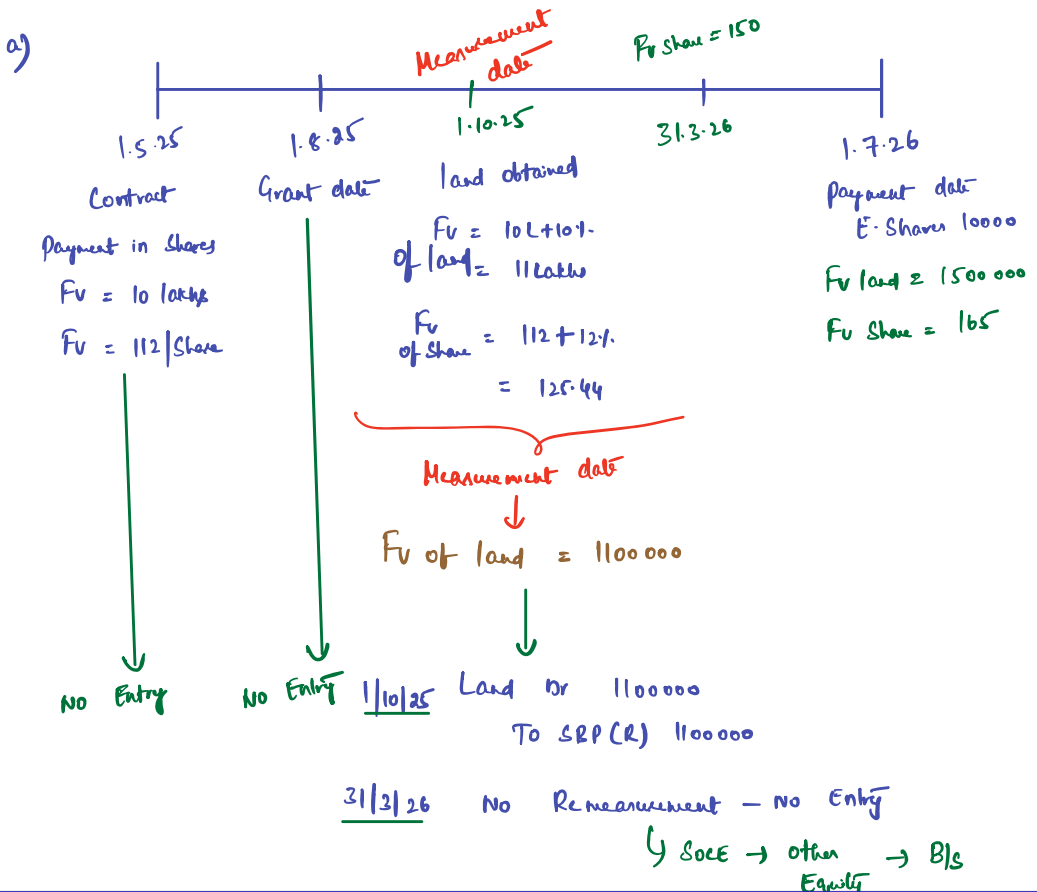 a)
Measurement
date
Fv share = 150
1.5.25
1.8.25
1.10.25
31.3.26
1.7.26
Contract
Payment in Shares
Fv = 10 lakhs
Fv = 112/Share
Grant date
land obtained
Fv = 10L+10%
of land = 11 Lakhs
Fv
of Share = 112 + 12%
= 125.44
Payment date
E. Shares 10000
Fv land = 1500 000
Fv Share = 165
Measurement date
Fv of land = 1100 000
No Entry
No Entry
1/10/25 Land Dr 1100000
To SBP (R) 1100000
31/3/26 No Remeasurement – No Entry
SOCE → other → B/S
Equity